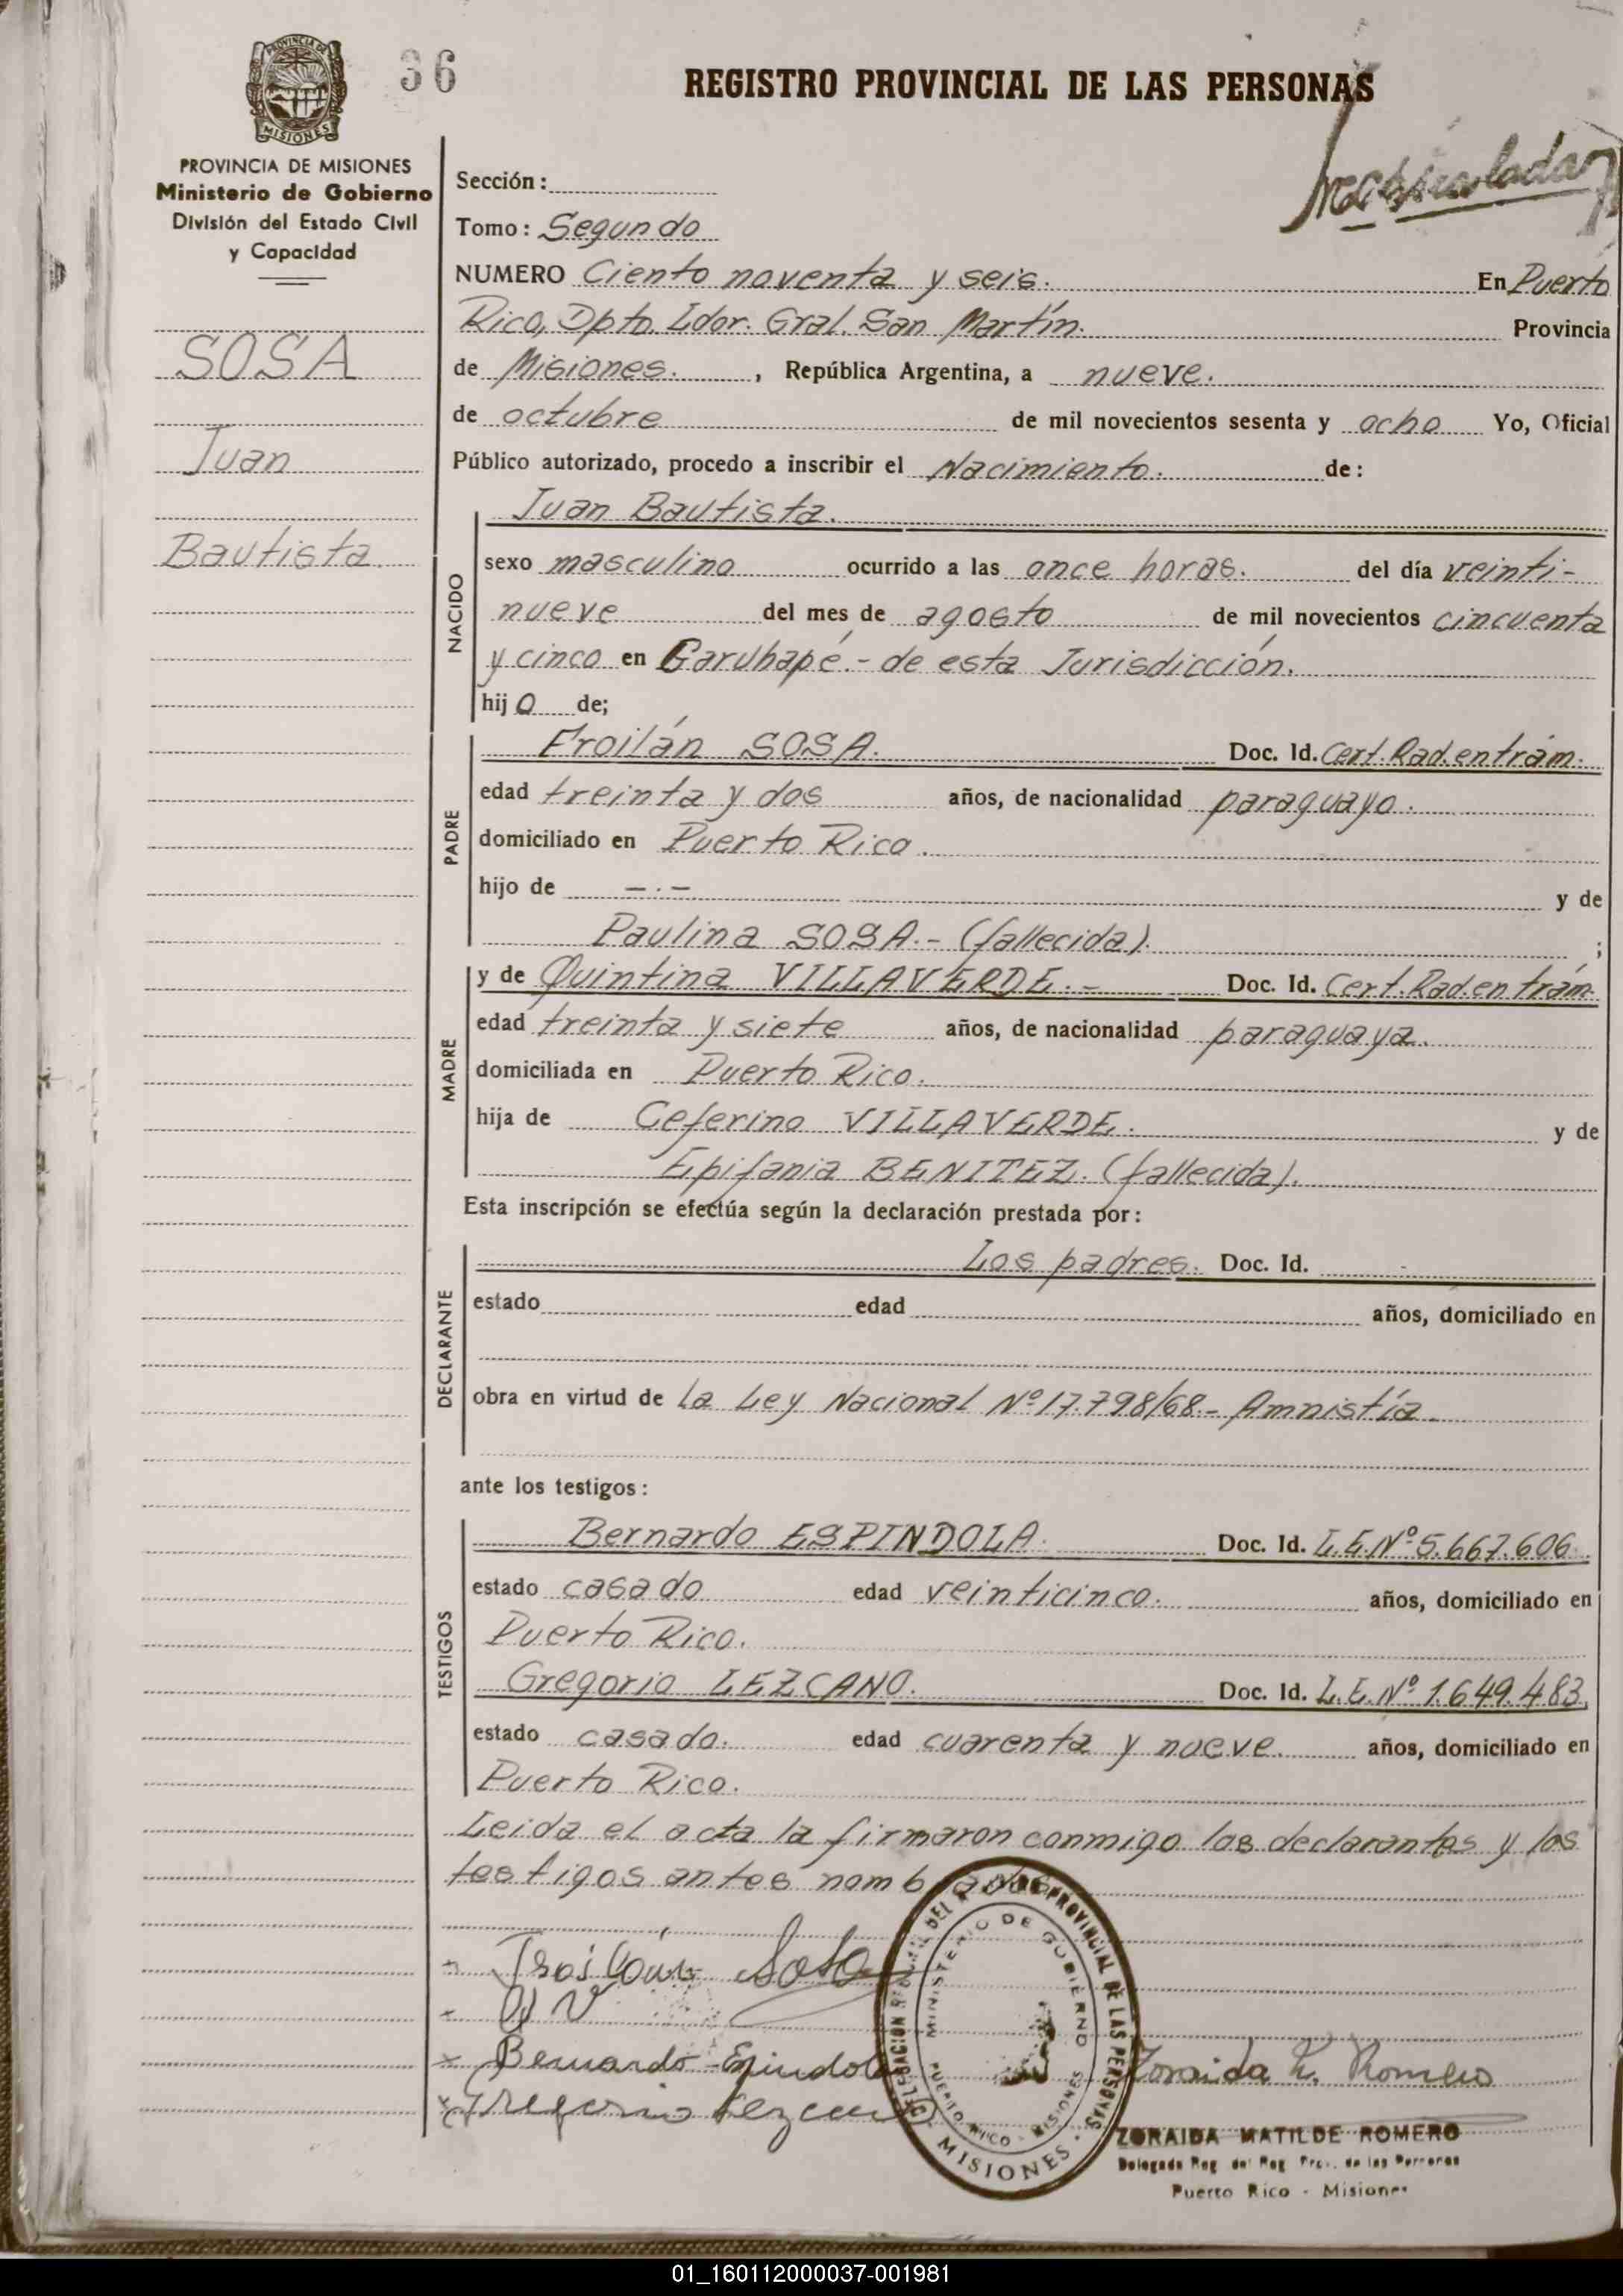 36
REGISTRO PROVINCIAL DE LAS PERSONAS
PROVINCIA DE
MISIONES
PROVINCIA DE MISIONES
Ministerio de Gobierno
División del Estado Civil
y Capacidad
SOSA
Juan
Bautista.
Sección:
Tomo: Segundo
NUMERO Ciento noventa y seis. En Puerto
Rico, Dpto. Ldor. Gral. San Martín. Provincia
de Misiones. , República Argentina, a nueve.
de octubre de mil novecientos sesenta y ocho Yo, Oficial
Público autorizado, procedo a inscribir el Nacimiento. de:
NACIDO
Juan Bautista.
sexo masculino ocurrido a las once horas. del día veinti-
nueve del mes de agosto de mil novecientos cincuenta
y cinco en Garuhapé.- de esta Jurisdicción.
hijo de;
PADRE
Froilán SOSA. Doc. Id. Cert. Rad. en trám.
edad treinta y dos años, de nacionalidad paraguayo.
domiciliado en Puerto Rico.
hijo de -.- y de
Paulina SOSA.- (fallecida). ;
MADRE
y de Quintina VILLAVERDE.- Doc. Id. Cert. Rad. en trám.
edad treinta y siete años, de nacionalidad paraguaya.
domiciliada en Puerto Rico.
hija de Ceferino VILLAVERDE. y de
Epifania BENITEZ. (fallecida).
Esta inscripción se efectúa según la declaración prestada por:
DECLARANTE
Los padres. Doc. Id.
estado edad años, domiciliado en
obra en virtud de la Ley Nacional Nº 17.798/68.- Amnistía
ante los testigos:
TESTIGOS
Bernardo ESPINDOLA. Doc. Id. L.E. Nº 5.667.606
estado casado edad veinticinco. años, domiciliado en
Puerto Rico.
Gregorio LEZCANO. Doc. Id. L.E. Nº 1.649.483.
estado casado. edad cuarenta y nueve. años, domiciliado en
Puerto Rico.
Leida el acta la firmaron conmigo los declarantes y los
testigos antes nombrados
Q V
Bernardo Espindola
Gregorio Lezcano
DEL PROVINCIAL DE LAS PERSONAS
MINISTERIO DE GOBIERNO
PUERTO RICO - MISIONES
- MISIONES -
Zoraida M. Romero
ZORAIDA MATILDE ROMERO
Delegada Reg. del Reg. Prov. de las Personas
Puerto Rico - Misiones
01_160112000037-001981